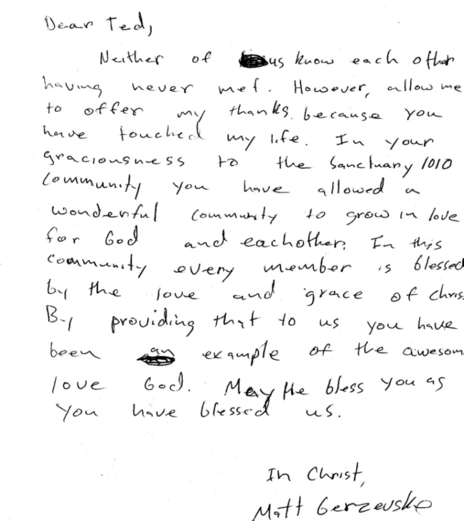 Dear Ted,
Neither of us know each other
having never met. However, allow me
to offer my thanks because you
have touched my life. In your
graciousness to the Sanctuary 1010
Community you have allowed a
wonderful community to grow in love
for God and eachother. In this
community every member is blessed
by the love and grace of Chris
By providing that to us you have
been example of the awesom
love God. May He bless you as
you have blessed us.
In Christ,
Matt Gerzevske